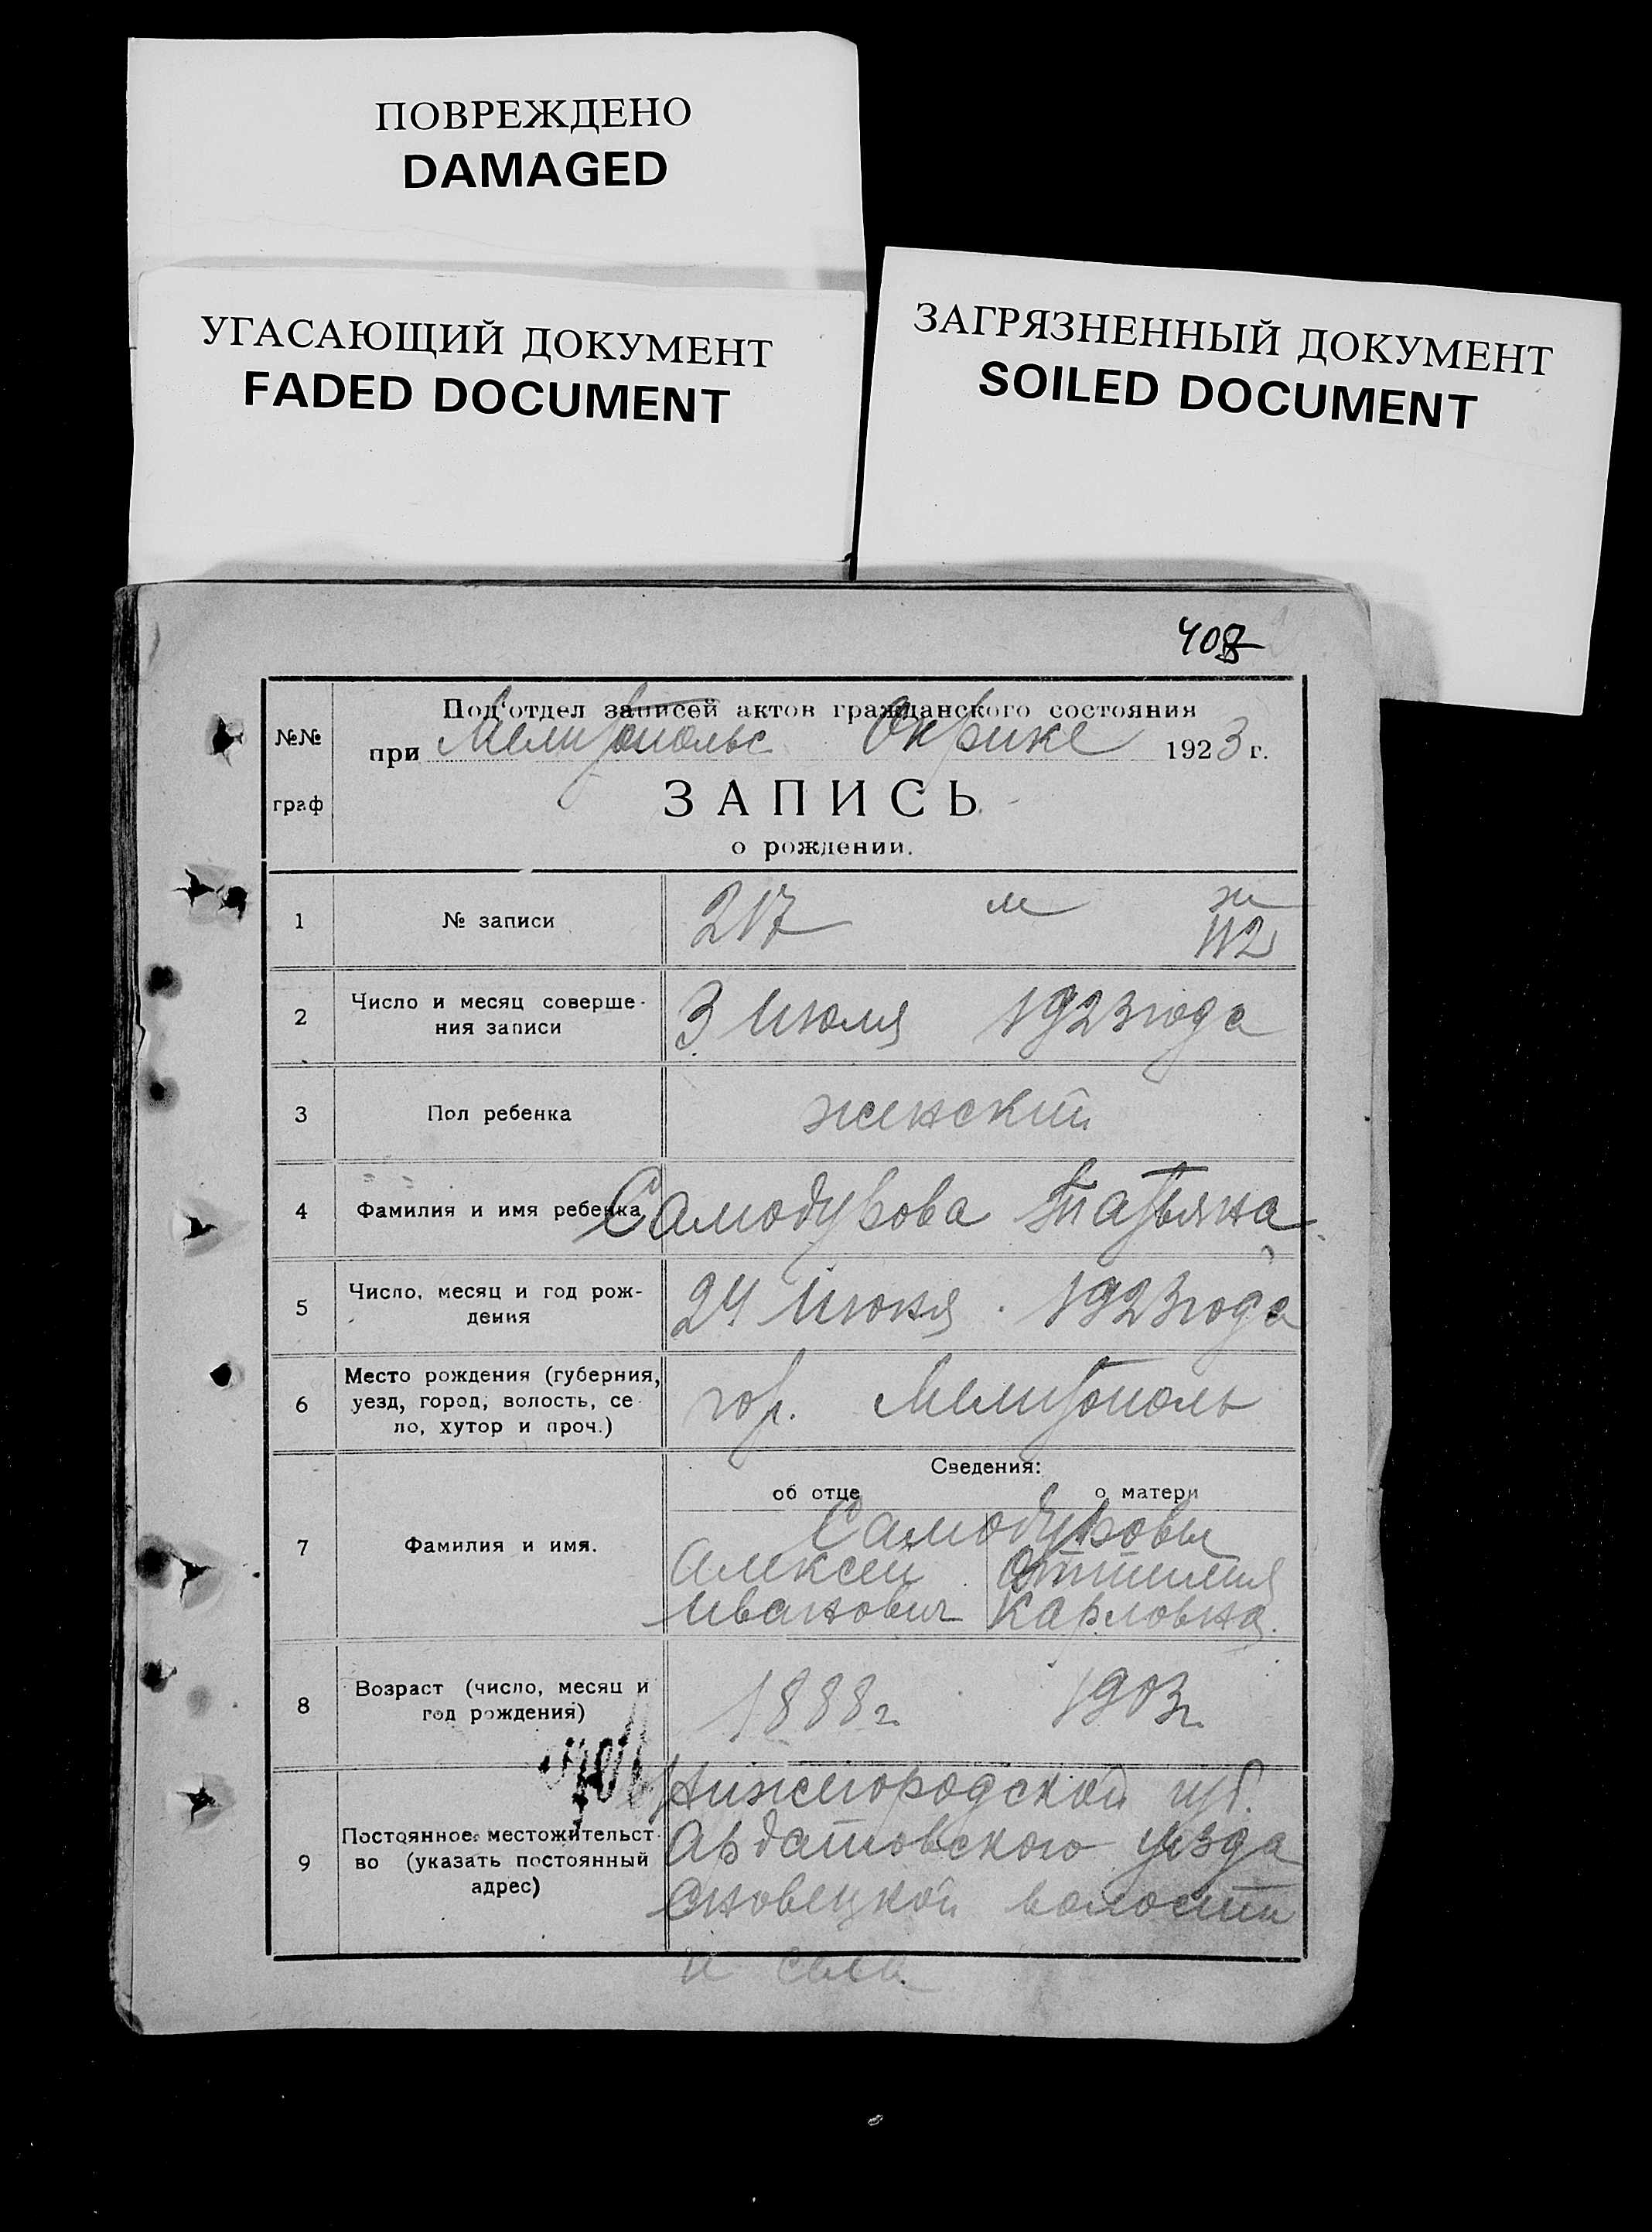 ПОВРЕЖДЕНО
DAMAGED
УГАСАЮЩИЙ ДОКУМЕНТ
FADED DOCUMENT
ЗАГРЯЗНЕННЫЙ ДОКУМЕНТ
SOILED DOCUMENT
408
№№
граф
Под'отдел записей актов гражданского состояния
при Мелитопольс Окрике 1923 г.
ЗАПИСЬ
о рождении.
1 № записи 217 м ж
112
2 Число и месяц соверше-
ния записи 3 Июля 1923 года
3 Пол ребенка женский
4 Фамилия и имя ребенка Самодурова Татьяна
5 Число, месяц и год рож-
дения 24 Июня 1923 года
6 Место рождения (губерния,
уезд, город, волость, се-
ло, хутор и проч.) гор. Мелитополь
Сведения:
об отце о матери
7 Фамилия и имя. Самодуровы
Алексей Оттилия
Иванович Карловна.
8 Возраст (число, месяц и
год рождения) 1888 г. 1903 г.
9 Постоянное местожительст-
во (указать постоянный
адрес)
Нижегородской губ.
Ардатовского уезда
волости
и села